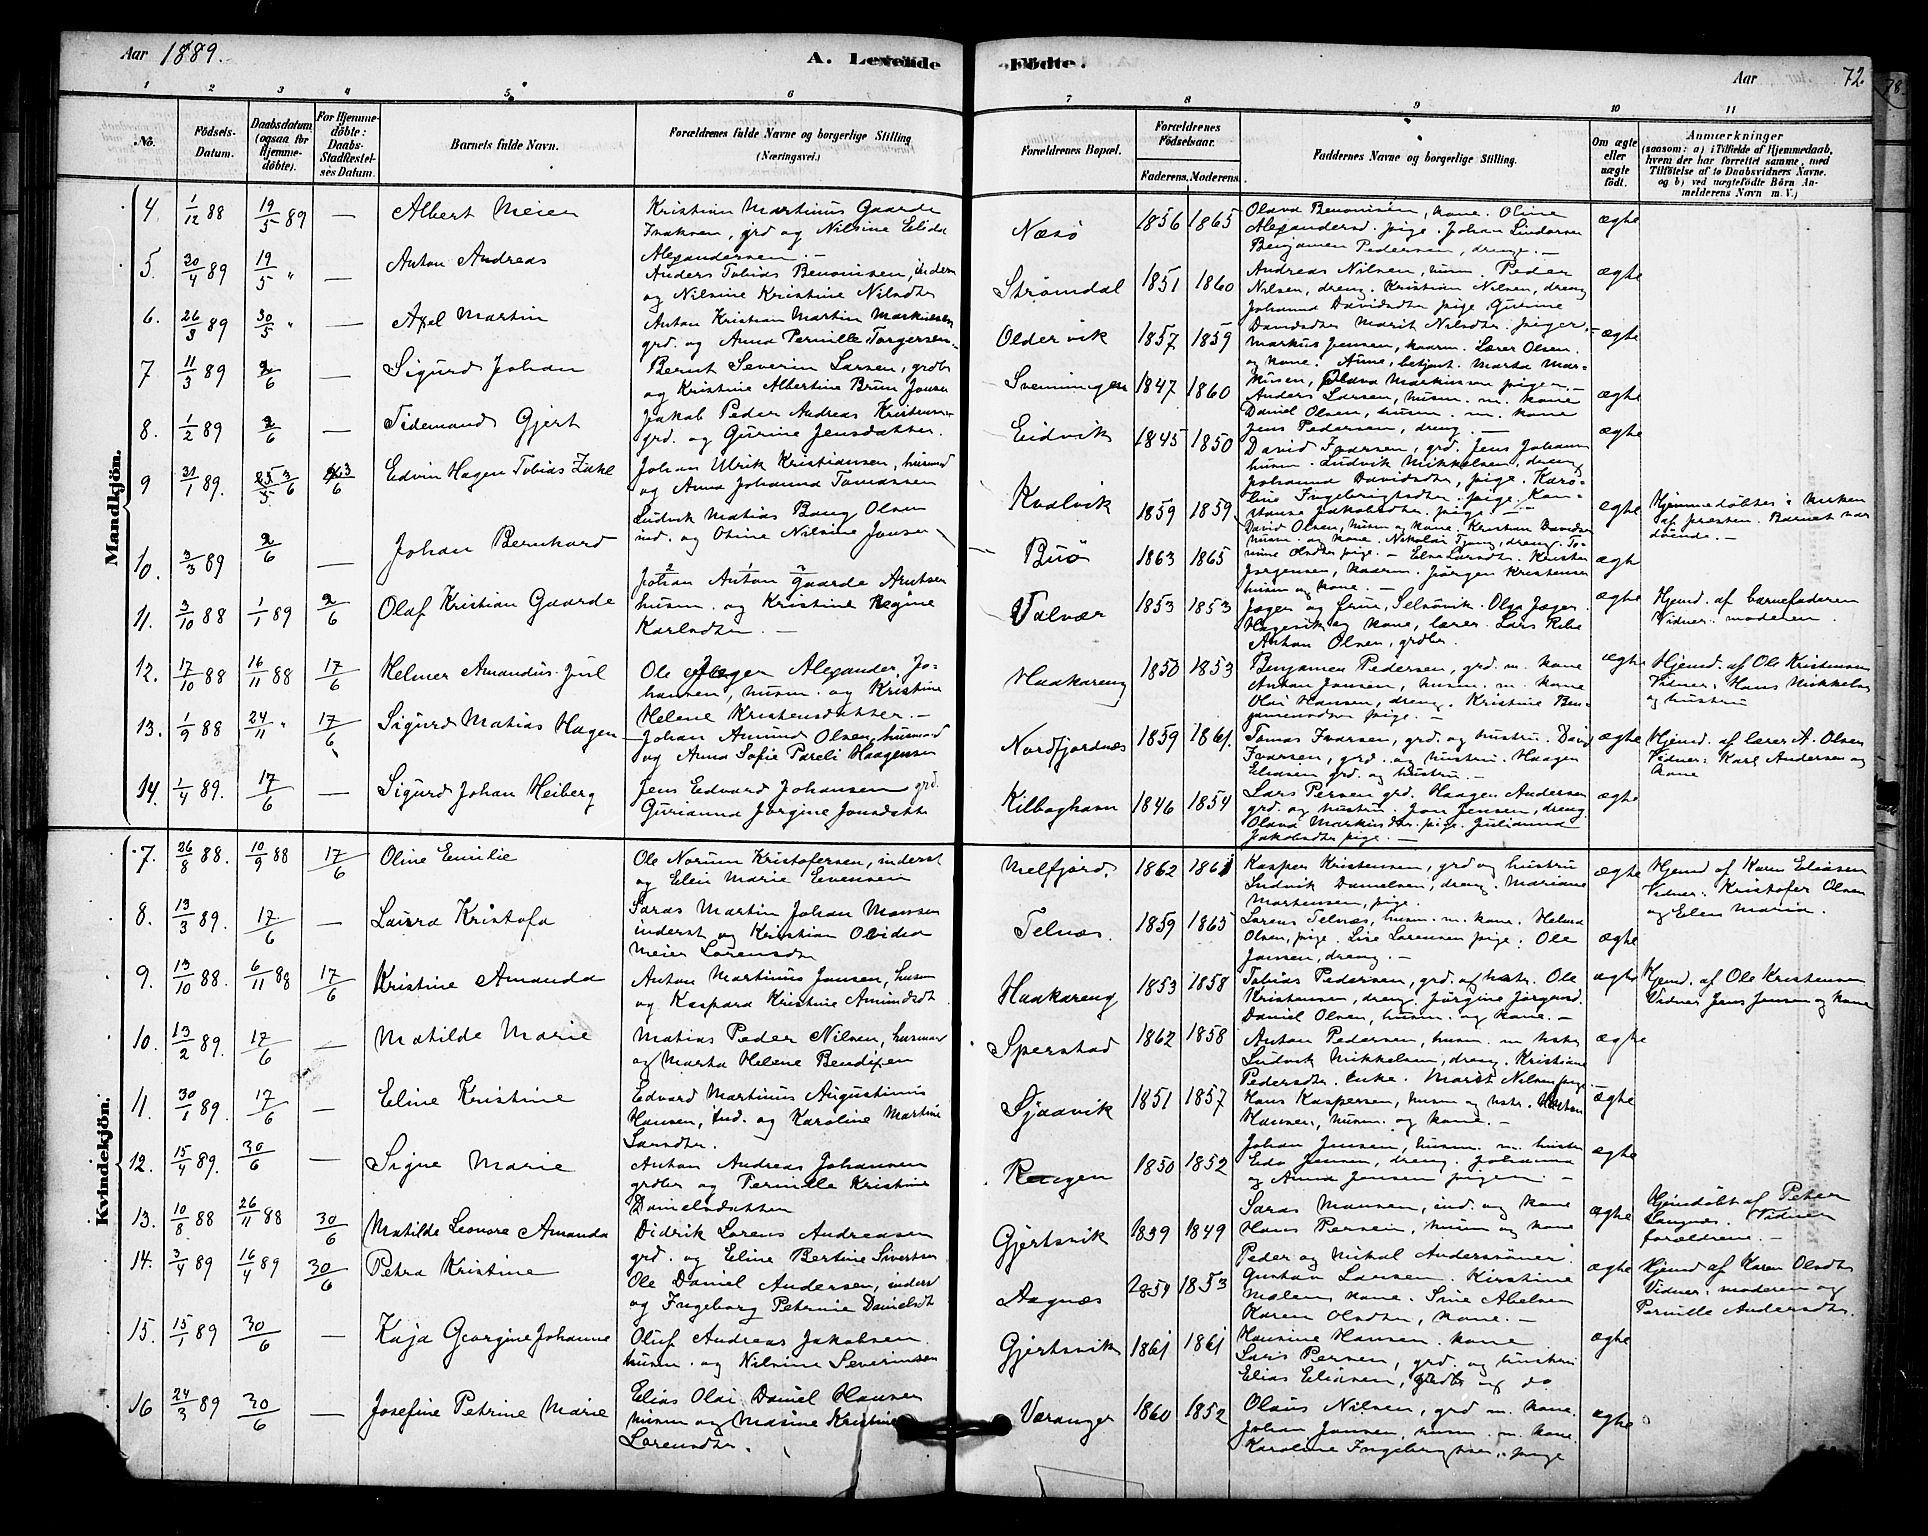 Aar 1889.
A. Levende
Födte.
Aar
72.
1 2 3 4 5 6 7 8 9 10 11
No.
Födsels-
Datum.
Daabsdatum
(ogsaa for
Hjemme-
döbte).
For Hjemme-
döbte:
Daabs-
Stadfæstel-
ses Datum.
Barnets fulde Navn.
Forældrenes fulde Navne og borgerlige Stilling
(Næringsvei.)
Forældrenes Bopæl.
Forældrenes
Födselsaar.
Faderens. Moderens.
Faddernes Navne og borgerlige Stilling.
Om ægte
eller
uægte
födt.
Anmærkninger
(saasom: a) i Tilfælde af Hjemmedaab,
hvem der har forrettet samme, med
Tilföielse af to Daabsvidners Navne.
og b) ved uægtefödte Börn An-
melderens Navn m. V.)
Mandkjön.
4. 1/12 88 19/5 89 — Albert Meier
Kristian Martinus Gaarde
Isaksen, grd og Nilsine Elida
Alexandersen. —
Næsö 1856 1865
Olava Benonisen, kone. Oline
Alexandersd. pige. Johan Lindorsen
Benjamen Pedersen, dreng. —
ægte
5. 20/4 89 19/5 " — Anton Andreas
Anders Tobias Benonisen, inderst
og Nilsine Kristine Nilsdtr
Strömdal 1851 1860
Andreas Nilsen, husm. Peder
Nilsen, dreng. Kristian Nilsen, dreng
Johanna Davidsdtr pige. Gurine
Davidsdtr Marit Nilsdtr. piger.
ægte
6. 26/3 89 30/5 " — Axel Martin
Anton Kristian Martin Markussen
grd. og Anna Pernille Torgersen.
Oldervik 1857 1859
Markus Jensen, kaarm. Lærer Olsen
og kone. Anne, betjent. Marta Mar-
kusen, Olava Markussen pigen. —
ægte
7. 11/3 89 2/6 — Sigurd Johan
Bernt Severin Larsen, grdbr
og Kristine Albertine Brun Jonsen
Sveiningen 1847 1860
Anders Larsen, husm. m. kone
Daniel Olsen, husm. m. kone
Jens Pedersen, dreng. —
ægte
8. 1/2 89 2/6 — Tidemand Gjert
Jakob Peder Andreas Kristensen
grd. og Gurine Jensdatter.
Eidvik 1845 1850
David Ivarsen, grd. Jens Johann
husm. Ludvik Mikkelsen, dreng
Johanna Davidsdtr, pige. Karo-
line Ingebrigtsdtr. pige. Kon-
stanse Jakobsdtr. pige —
ægte
9 31/1 89. 3/6 3/6 Edvin Hagen Tobias
Johan Ulrik Kristiansen, husmd
og Anna Johanna Tomassen
Kvalvik 1859 1859
David Olsen, husm og kone. Kristian Davidsen
husm. og kone. Nikolai Tjong, dreng. To-
mine Olsdtr pige. —
ægte
Hjemmedöbtes i kirken
af presten. Barnet var
döende. —
10. 3/3 89 2/6 — Johan Bernhard
Ludvik Matias Bang Olsen
ind. og Oline Nilsine Jonsen
Buö 1863 1865
Elen Larsdtr. Kristen
Jörgensen, kaarm. Jörgen Kristensen
husm og kone. —
ægte
11. 3/10 88 1/1 89 2/6 Olaf Kristian Gaarde
Johan Anton Gaarde Arntsen
husm. og Kristine Regine
Karlsdtr. —
Valvær 1853 1853
Jæger og Frue, Selsövik. Olga Jæger
Hagevik og kone, lærer. Lars
Anton Olsen, grdbr.
ægte
Hjemd. af barnefaderen
Vidner: moderen.
12. 17/10 88 16/11 88 17/6 Helmer Amandus Juul
Ole Jæger Alexander Jo-
hansen, husm. og Kristine
Helene Kristensdatter. —
Haakareng 1850 1853
Benjamen Pedersen, grd. m. kone
Anton Jansen, husm. m. kone
Olai Hansen, dreng. Kristine Ben-
jamensdtr pige. —
ægte
Hjemd. af Ole Kristensen
Vidner: Hans Mikkelsen
og hustru
13. 1/9 88 24/11 " 17/6 Sigurd Matias Hagen
Johan Amund Olsen, husmand
og Anna Sofie Pareli Haagensen
Nordfjordnæs 1859 1861.
Tomas Ivarsen, grd. og hustru. David
Ivarsen, grd. og hustru. Haagen
Eliasen grd. og hustru. —
ægte
Hjemd. af lærer A. Olsen
Vidner: Karl Andersen og
kone
14. 1/4 89. 17/6 — Sigurd Johan Heiberg
Jens Edvard Johansen grd.
Gurianna Jörgine Jonsdatter
Kilboghavn 1846 1854
Lars Persen grd. Haagen Andersen
grd. og hustru. Jon Jensen, dreng
Olava Markusdtr. pige. Julianna
Jakobsdtr pige. —
ægte
Kvindekjön.
7. 26/8 88. 10/9 88 17/6 Oline Emilie
Ole Norum Kristofersen, inderst
og Elen Marie Evensen
Melfjord. 1862 1861
Kasper Kristensen, grd og hustru
Ludvik Danielsen, dreng. Mariane
Martensen, pige.
ægte
Hjemd af Karen Eliasen
Vidner: Kristofer Olsen
og Elen Maria.
8. 13/3 89. 17/6 — Laura Kristofa
Saras Martin Johan Monsen
inderst og Kristian Ovidia
Meier Lorensdtr
Telnæs. 1859 1865
Lorens Telnæs, husm. m. kone. Helena
Olsen, pige. Lise Lorensen pige. Ole
Jansen, dreng. —
ægte
9. 13/10 88. 6/11 88 17/6 Kristine Amanda
Anton Martinus Jansen, husm
og Kaspara Kristine Amundsdt.
Haakareng 1853 1858
Tobias Pedersen, grd. og hstr. Ole
Kristensen, dreng. Jörgine Jörgensd.
Daniel Olsen, husm. og kone. —
ægte
Hjemd. af Ole Kristensen
Vidner Jens Jensen og kone
10. 13/2 89. 17/6 — Matilde Marie
Matias Peder Nilsen, husmand
og Marta Helene Bendixen
Sperstad 1862 1858
Anton Pedersen, husm. m hstr
Ludvik Mikkelsen, dreng. Kristiane
Pedersdtr. Enke. Marit Nilsen pige —
ægte
11. 30/1 89. 17/6 — Eline Kristine
Edvard Martinus Augustinus
Hansen, ind. og Karoline Martine
Larsdtr.
Sjaavik 1851 1857
Hans Kaspersen, husm og hstr. Kristian
Hansen, husm. og kone. —
ægte
12. 15/4 89. 30/6 — Signe Marie
Anton Andreas Johannsen
grdbr og Pernille Kristine
Danielsdatter
Rangen 1850 1852
Johan Jensen, husm. m. hustru
Edv Jensen, dreng. Johanna
og Anna Jonsen pigen. —
ægte
13. 10/8 88 26/11 88 30/6 Matilde Leonore Amanda
Didrik Lorens Andreasen
grd. og Eline Bertine Sivertsen
Gjertsvik 1839 1849
Saras Monsen, ind. og kone
Hans Persen, husm og kone
Peder og Mikal Anderssöner
ægte
Hjemdöbt af Peter
Langnes. Vidner
forældrene. —
14. 3/4 89 16/4 89 30/6 Petra Kristine
Ole Daniel Andersen, inderst
og Ingeborg Petrine Danielsdt
Aagnæs 1859 1853
Gustav Larsen. Kirstine
Molen, kone. Sine Abelsen
Karen Olsdtr, kone. —
ægte
Hjemd af Karen Olsdtr
Vidner: moderen og
Pernille Andersdtr.
15. 15/1 89 30/6 — Kaja Georgine Johanne
Oluf Andreas Jakobsen
husm. og Nilsine Severinsen
Gjertsvik 1861 1861
Hansine Hansen. kone
Laris Persen, grd. og hustru
Elias Eliasen, grdbr og do
ægte
16 24/3 89 30/6 — Josefine Petrine Marie
Elias Olai Daniel Hansen
husm og Masine Kristine
Lorensdtr.
Varanger 1860 1852
Olaus Nilsen, grd m. kone.
Johan Jansen, husm. m. kone.
Karoline Ingeberg pige
ægte